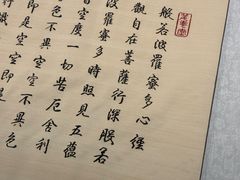 般若波羅蜜多心經
觀自在菩薩行深般若
波羅蜜多時照見五蘊
空度一切苦厄舍利
色不異空空不異色
是空空即是